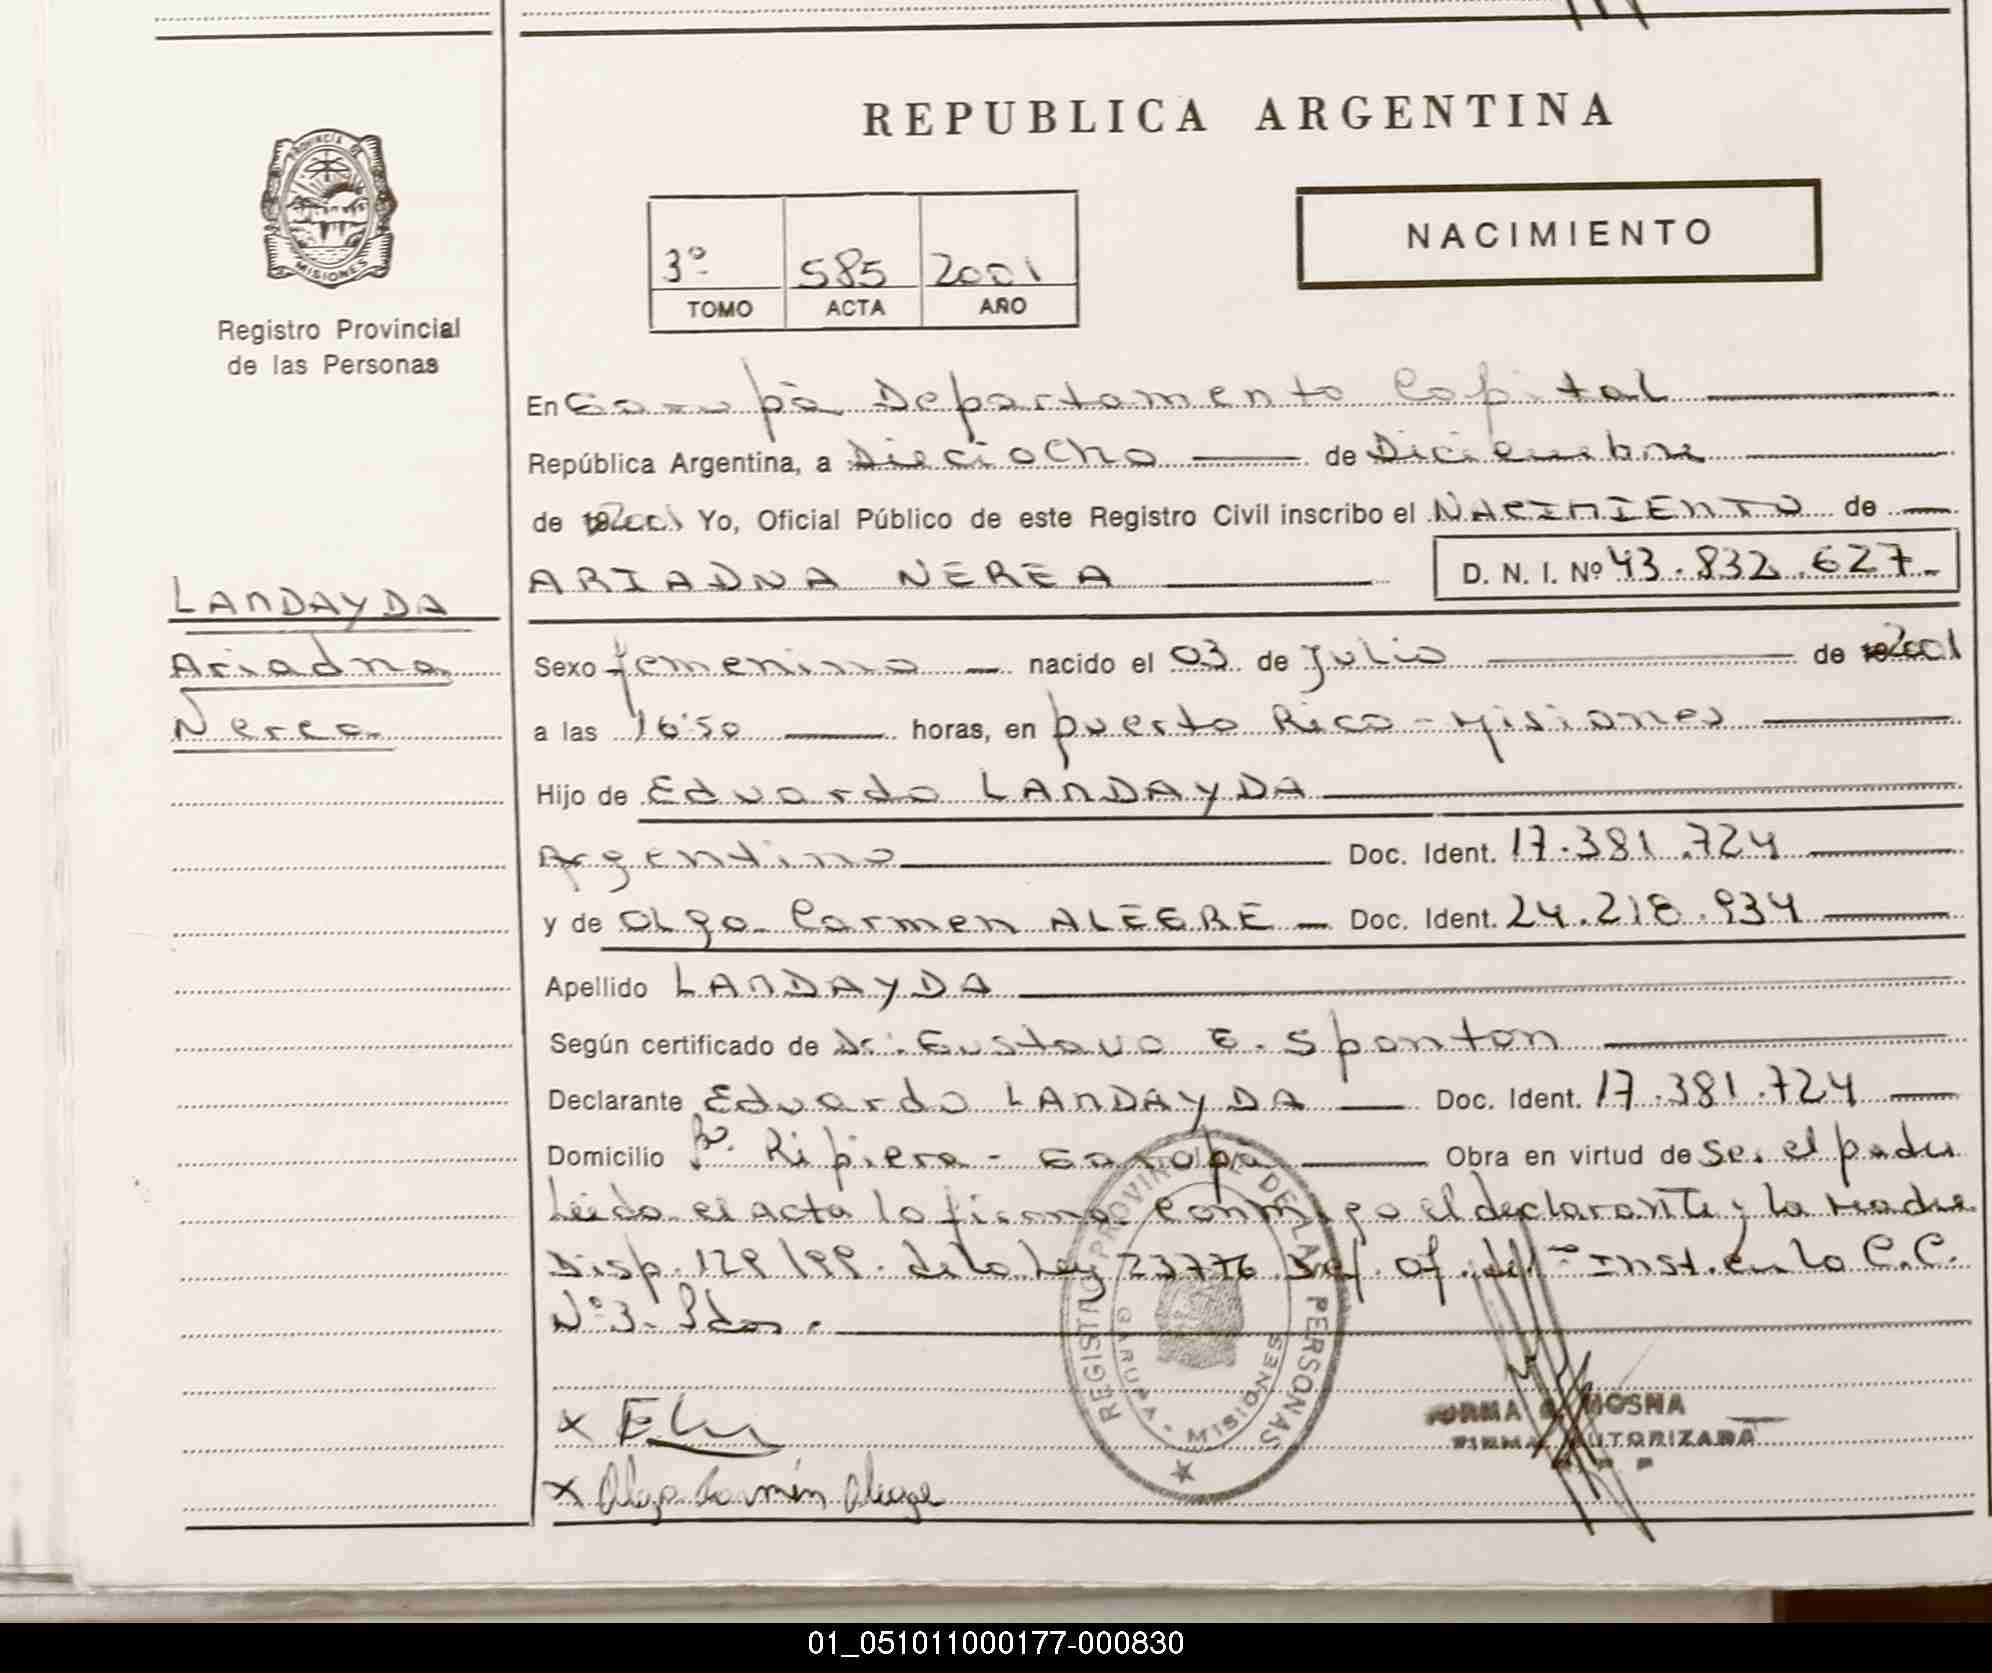 REPUBLICA ARGENTINA
PROVINCIA DE
MISIONES
Registro Provincial
de las Personas
NACIMIENTO
3º 585 2001
TOMO ACTA AÑO
En Garupá Departamento Capital
República Argentina, a Dieciocho de Diciembre
de 2001 Yo, Oficial Público de este Registro Civil inscribo el NACIMIENTO de
ARIADNA NEREA D. N. I. Nº 43.832.627.-
LANDAYDA
Ariadna
Nerea
Sexo femenino nacido el 03 de Julio de 2001
a las 16:50 horas, en puerto Rico - Misiones
Hijo de Eduardo LANDAYDA
Argentino Doc. Ident. 17.381.724
y de Olga Carmen ALEGRE Doc. Ident. 24.218.934
Apellido LANDAYDA
Según certificado de Dr. Gustavo E. Spanton
Declarante Eduardo LANDAYDA Doc. Ident. 17.381.724
Domicilio Bº. Ripiera - Garupa Obra en virtud de Ser el padre
Leida el acta la firma conmigo el declarante y la Madre
Disp. 129/99. de la Ley 23776 Def. of. de 1ª Inst. en lo C.C.
Nº 3. Pdas.
REGISTRO PROVINCIAL DE LAS PERSONAS
GARUPA - MISIONES
X
X Olga Carmen Alegre
NORMA MOSNA
FIRMA AUTORIZADA
01_051011000177-000830